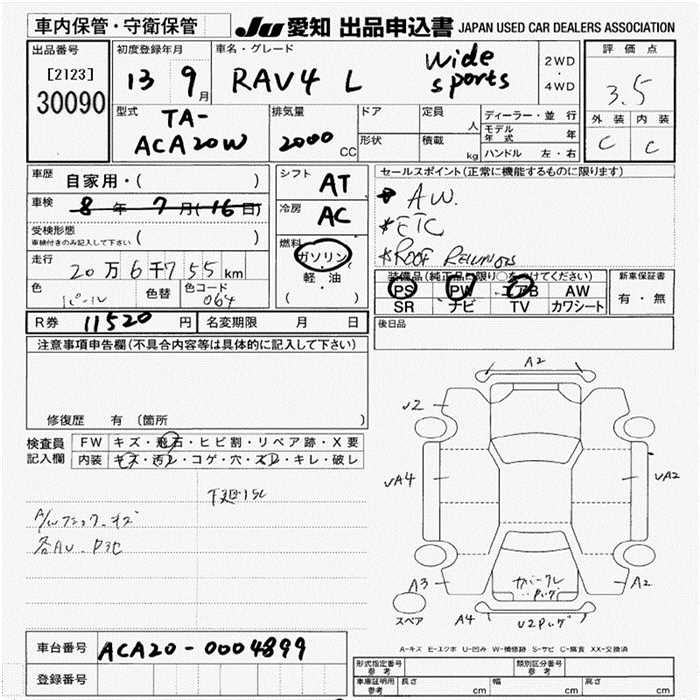 車内保管・守衛保管
JU 愛知 出品申込書 JAPAN USED CAR DEALERS ASSOCIATION
出品番号
[2123]
30090
初度登録年月
13 9月
車名・グレード
RAV4 L Wide sports
2WD
・
4WD
評価点
3.5
外装 内装
C C
型式
TA-
ACA20W
排気量
2000 CC
ドア
形状
定員 人
積載 kg
ディーラー・並行
モデル年式 年
ハンドル 左・右
車歴 自家用・( )
車検 8年7月(16日)
受検形態
車検付きのみ記入して下さい ( )
走行 20万6千755km
色 パール 色替 色コード 064
シフト AT
冷房 AC
燃料
ガソリン
軽・油
( )
セールスポイント(正常に機能するものに限ります)
AW.
*ETC
*ROOF
装備品(純正品に限り○をつけてください)
PS PW エアB AW
SR ナビ TV カワシート
新車保証書
有・無
R券 11520円 名変期限 月 日
後日品
注意事項申告欄(不具合内容等は具体的に記入して下さい)
修復歴 有 〔箇所 〕
検査員
記入欄
FW キズ・飛石・ヒビ割・リペア跡・X要
内装 キズ・汚レ・コゲ・穴・スレ・キレ・破レ
A2
U2
UA4 UA2
A3 A2
スペア
A4
A-キズ E-エクボ U-凹み W-補修跡 S-サビ C-腐食 XX-交換済
車台番号 ACA20-0004899
登録番号
形式指定番号
参考
類別区分番号
参考
車庫証明用
参考
長さ cm 幅 cm 高さ cm